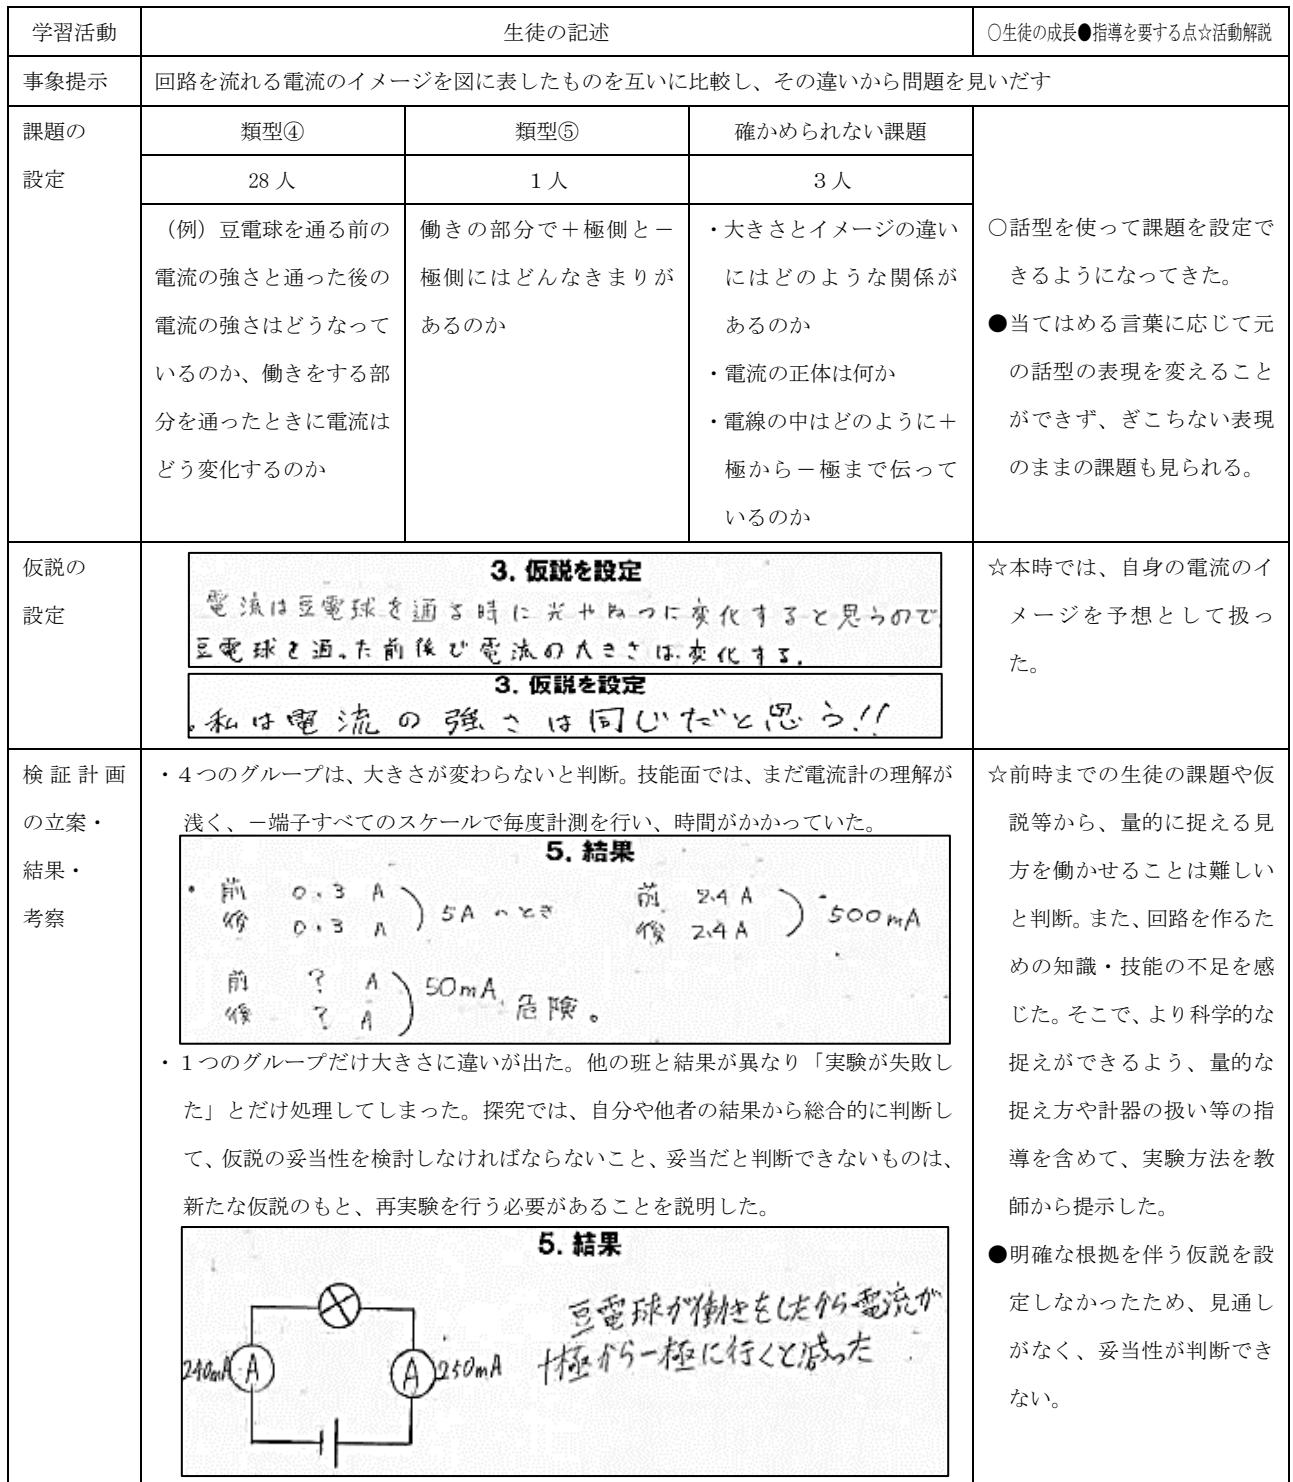 学習活動
生徒の記述
○生徒の成長●指導を要する点☆活動解説
事象提示
回路を流れる電流のイメージを図に表したものを互いに比較し、その違いから問題を見いだす
課題の
設定
類型④
類型⑤
確かめられない課題
28人
1人
3人
（例）豆電球を通る前の
電流の強さと通った後の
電流の強さはどうなって
いるのか、働きをする部
分を通ったときに電流は
どう変化するのか
働きの部分で＋極側と－
極側にはどんなきまりが
あるのか
・大きさとイメージの違い
にはどのような関係が
あるのか
・電流の正体は何か
・電線の中はどのように＋
極から－極まで伝って
いるのか
○話型を使って課題を設定で
きるようになってきた。
●当てはめる言葉に応じて元
の話型の表現を変えること
ができず、ぎこちない表現
のままの課題も見られる。
仮説の
設定
3. 仮説を設定
電流は豆電球を通る時に光やねつに変化すると思うので
豆電球を通った前後で電流の大きさは変化する。
3. 仮説を設定
私は電流の強さは同じだと思う!!
☆本時では、自身の電流のイ
メージを予想として扱っ
た。
検証計画
の立案・
結果・
考察
・４つのグループは、大きさが変わらないと判断。技能面では、まだ電流計の理解が
浅く、－端子すべてのスケールで毎度計測を行い、時間がかかっていた。
5. 結果
・前 0.3 A
後 0.3 A
5Aのとき
前 2.4 A
後 2.4 A
500mA
前 ? A
後 ? A
50mA 危険。
・１つのグループだけ大きさに違いが出た。他の班と結果が異なり「実験が失敗し
た」とだけ処理してしまった。探究では、自分や他者の結果から総合的に判断し
て、仮説の妥当性を検討しなければならないこと、妥当だと判断できないものは、
新たな仮説のもと、再実験を行う必要があることを説明した。
5. 結果
240mA A
A 250mA
豆電球が働きをしたから電流が
＋極から－極に行くと減った
☆前時までの生徒の課題や仮
説等から、量的に捉える見
方を働かせることは難しい
と判断。また、回路を作るた
めの知識・技能の不足を感
じた。そこで、より科学的な
捉えができるよう、量的な
捉え方や計器の扱い等の指
導を含めて、実験方法を教
師から提示した。
●明確な根拠を伴う仮説を設
定しなかったため、見通し
がなく、妥当性が判断でき
ない。